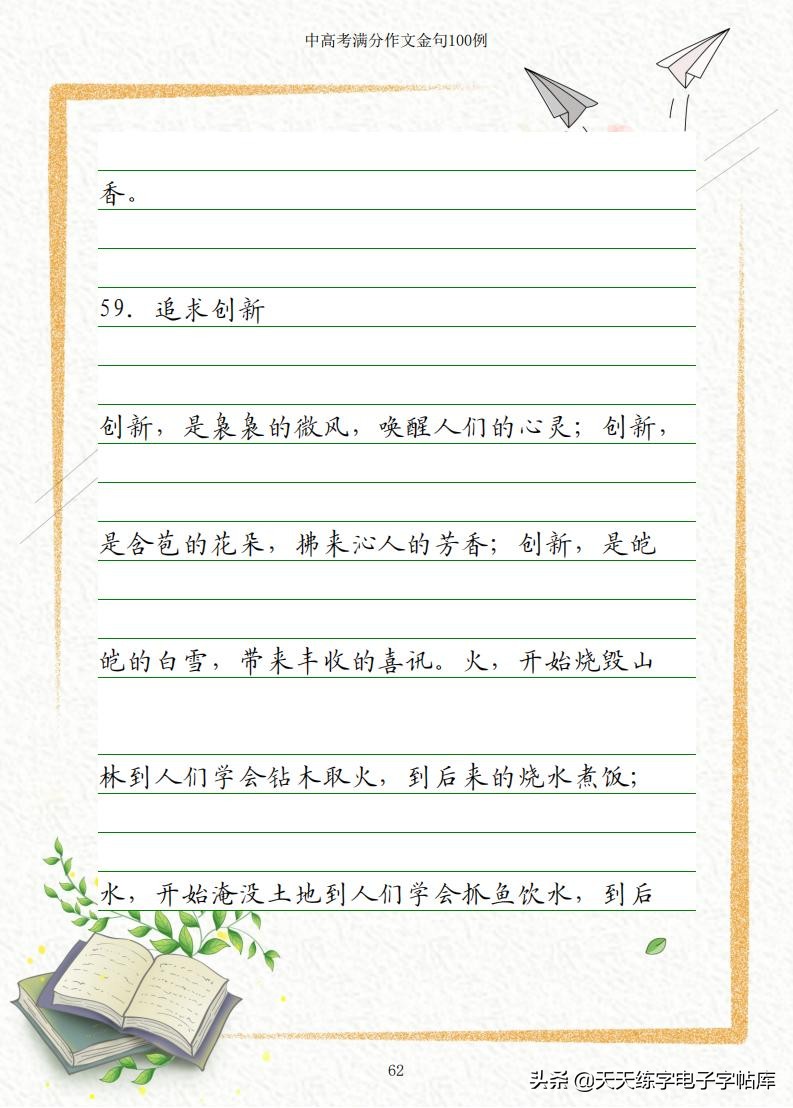 中高考满分作文金句100例
香。
59. 追求创新
创新，是袅袅的微风，唤醒人们的心灵；创新，
是含苞的花朵，拂来沁人的芳香；创新，是皑
皑的白雪，带来丰收的喜讯。火，开始烧毁山
林到人们学会钻木取火，到后来的烧水煮饭；
水，开始淹没土地到人们学会抓鱼饮水，到后
62
头条 @天天练字电子字帖库